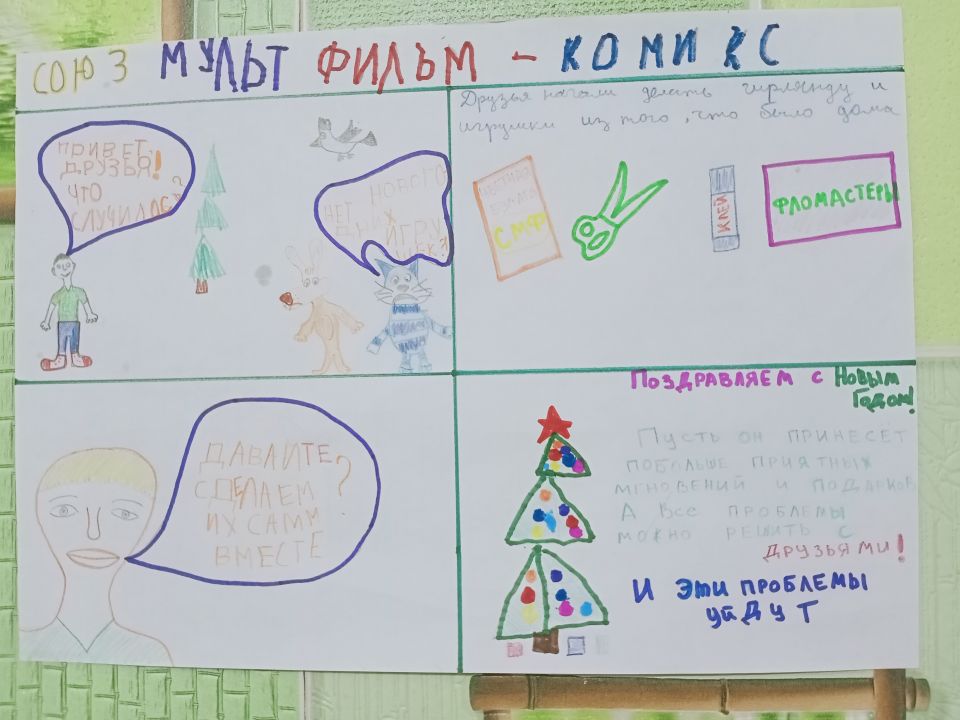 СОЮЗ МУЛЬТ ФИЛЬМ - КОМИКС
ПРИВЕТ,
ДРУЗЬЯ!
ЧТО
СЛУЧИЛОСЬ?
НЕТ НОВОГО
ДНИХ
ИГРУ
ШЕК?
Друзья начали делать гирлянду и
игрушки из того, что было дома
ЦВЕТНАЯ
БУМАГА
СМФ
КЛЕЙ
ФЛОМАСТЕРЫ
ДАВАЙТЕ
СДЕЛАЕМ
ИХ САМИ
ВМЕСТЕ?
Поздравляем с Новым
Годом!
Пусть он принесет
побольше приятных
мгновений и подарков
А все проблемы
можно решить с
друзьями!
И эти проблемы
уйдут